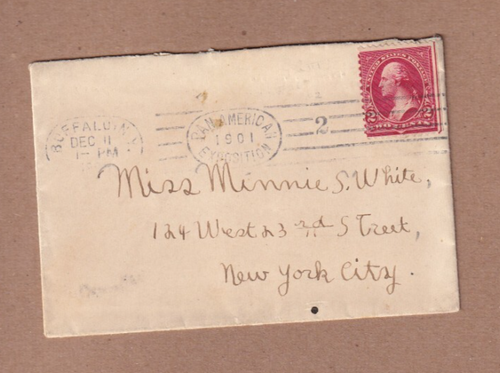 BUFFALO, N.Y.
DEC 11
1 - PM
PAN-AMERICAN
1901
EXPOSITION
2
UNITED STATES POSTAGE
2 2
TWO CENTS
Miss Minnie S. White,
124 West 23rd Street,
New York City.